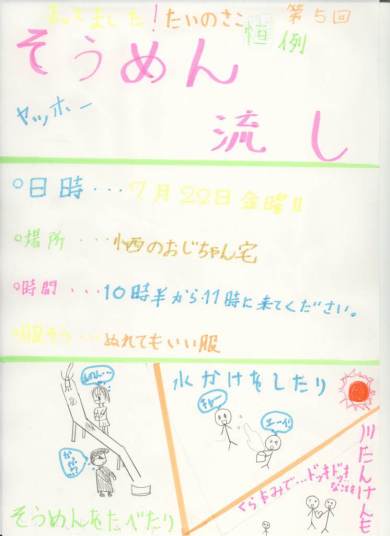 まってました!たいのさこ 恒例 第5回
そうめん
流し
ヤッホー
○日時・・・7月20日金曜日
○場所・・・栖のおじちゃん宅
○時間・・・10時半から11時に来てください。
○服そう・・・ぬれてもいい服
そうめんをたべたり
水かけをしたり
キャー
エーイ
川たんけんも
くらやみで…ドッキドキ
なことを